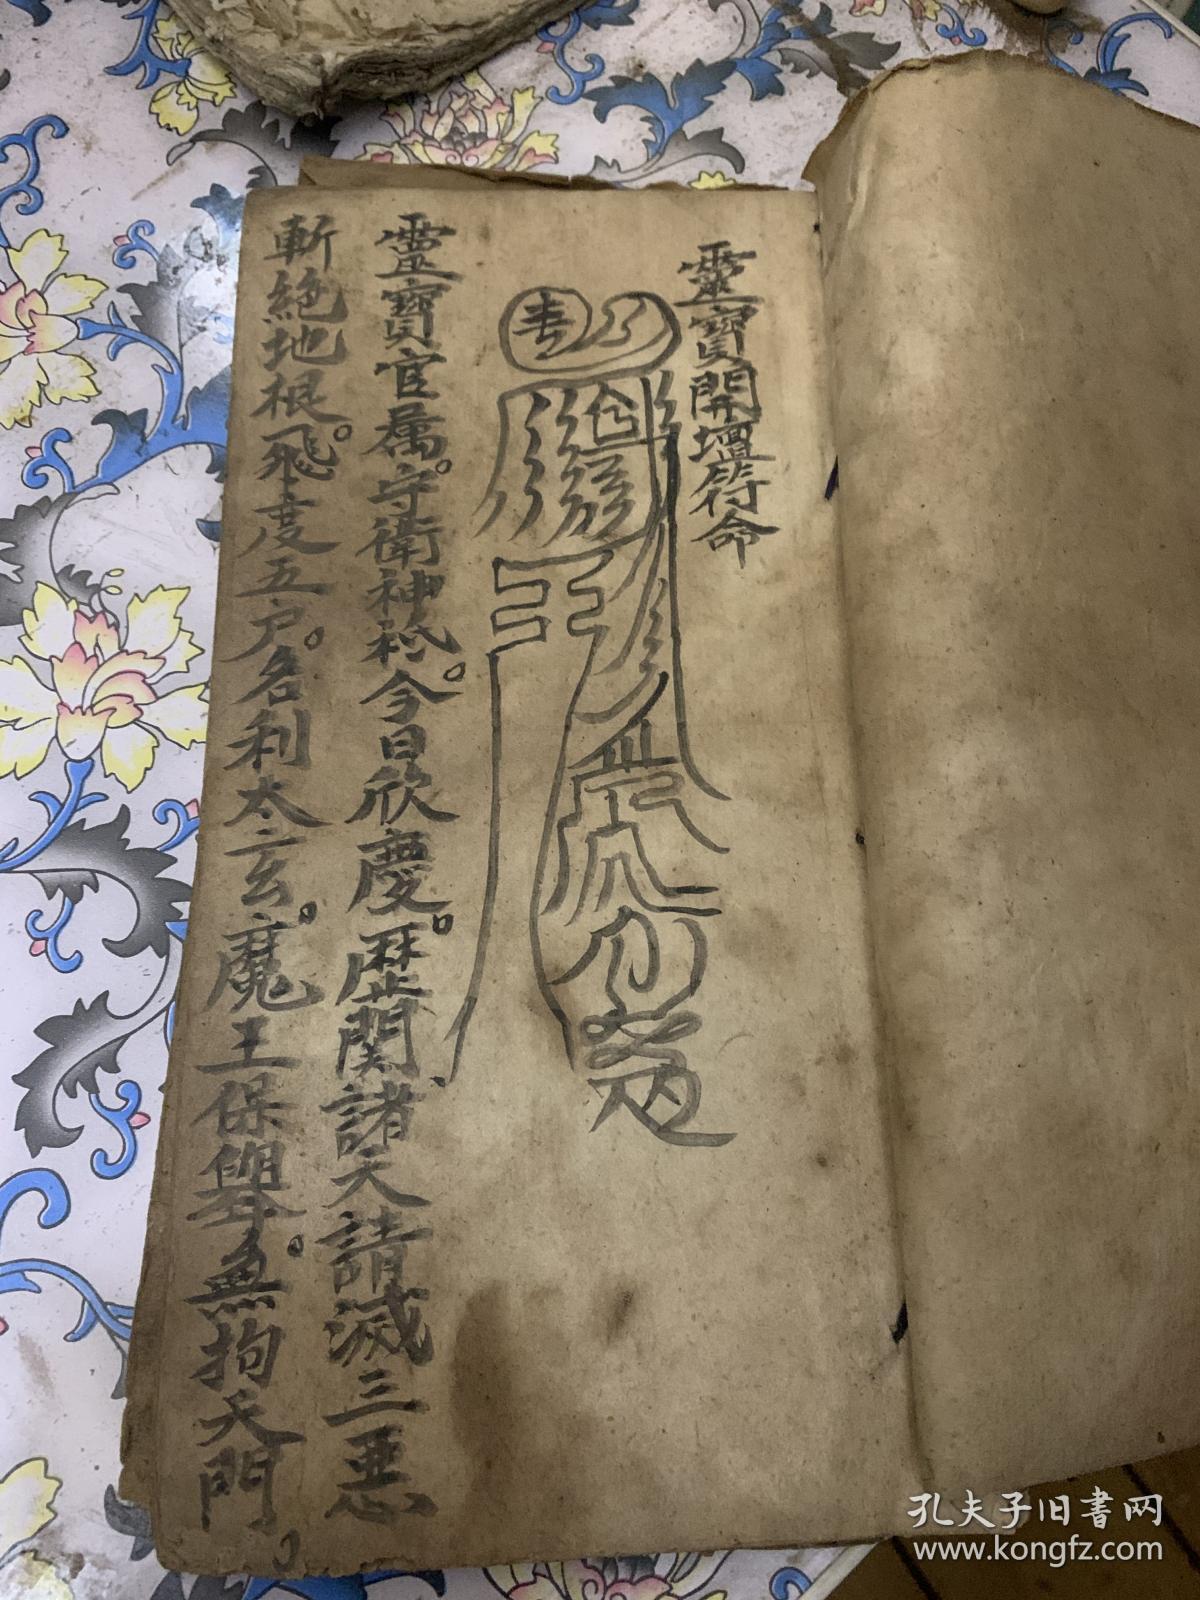 靈寶開壇符命
靈寶官屬。守衛神祇。今日欣慶。歷関諸天請滅三惡
斬絕地根。飛度五户。名利太玄。魔王保舉。無拘天門。
孔夫子旧書网
www.kongfz.com